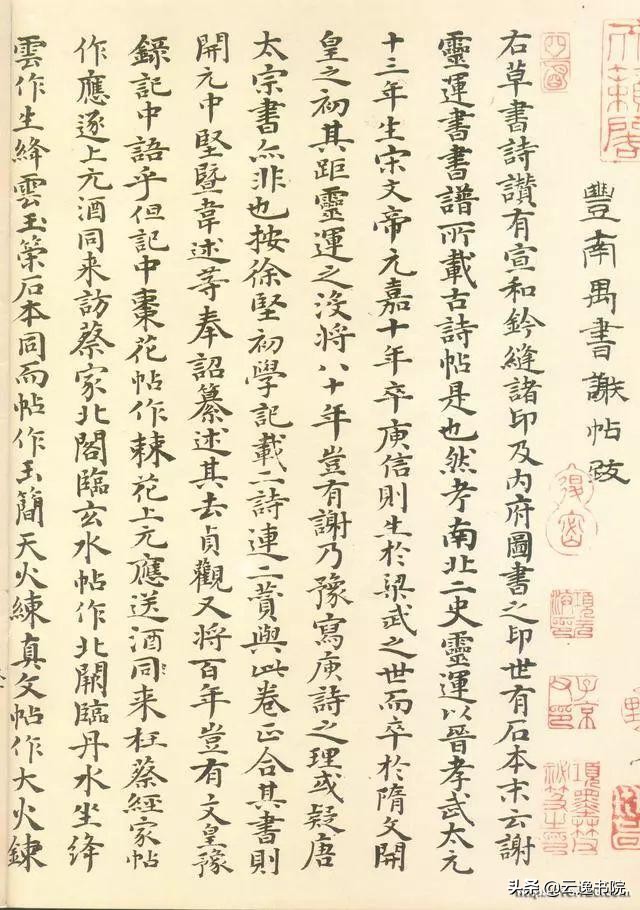 豐南禺書謝帖跋
右草書詩讚有宣和鈐縫諸印及内府圖書之印世有石本末云謝
靈運書書譜所載古詩帖是也然考南北二史靈運以晉孝武太元
十三年生宋文帝元嘉十年卒庾信則生於梁武之世而卒於隋文開
皇之初其距靈運之沒將八十年豈有謝乃豫寫庾詩之理或疑唐
太宗書亦非也按徐堅初學記載二詩連二贊與此卷正合其書則
開元中堅暨韋述等奉詔纂述其去貞觀又將百年豈有文皇豫
錄記中語乎但記中棗花帖作棘花上元應送酒同来枉蔡經家帖
作應逐上元酒同来訪蔡家北閣臨玄水帖作北闕臨丹水坐絳
雲作生絳雲玉策石本同而帖作玉簡天火練真文帖作大火鍊
天籟閣
項墨林
子京
头条@云逸书院